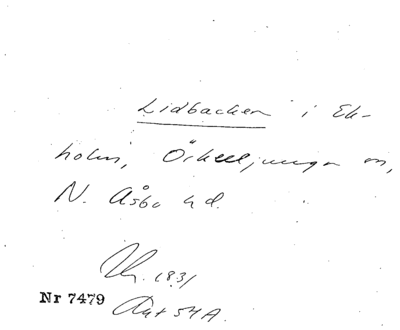 Lidbacken i Ek-
holm, Örkelljunga sn,
N. Åsbo hd.
1831
Nr 7479
Akt 54A.